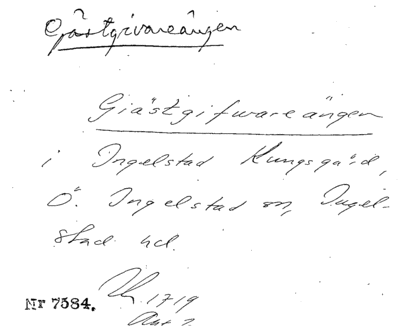 Gästgivareängen
Giästgifwareängen
i Ingelstad Kungsgård,
Ö. Ingelstad sn, Ingel-
stad hd.
1719
Nr 7584.